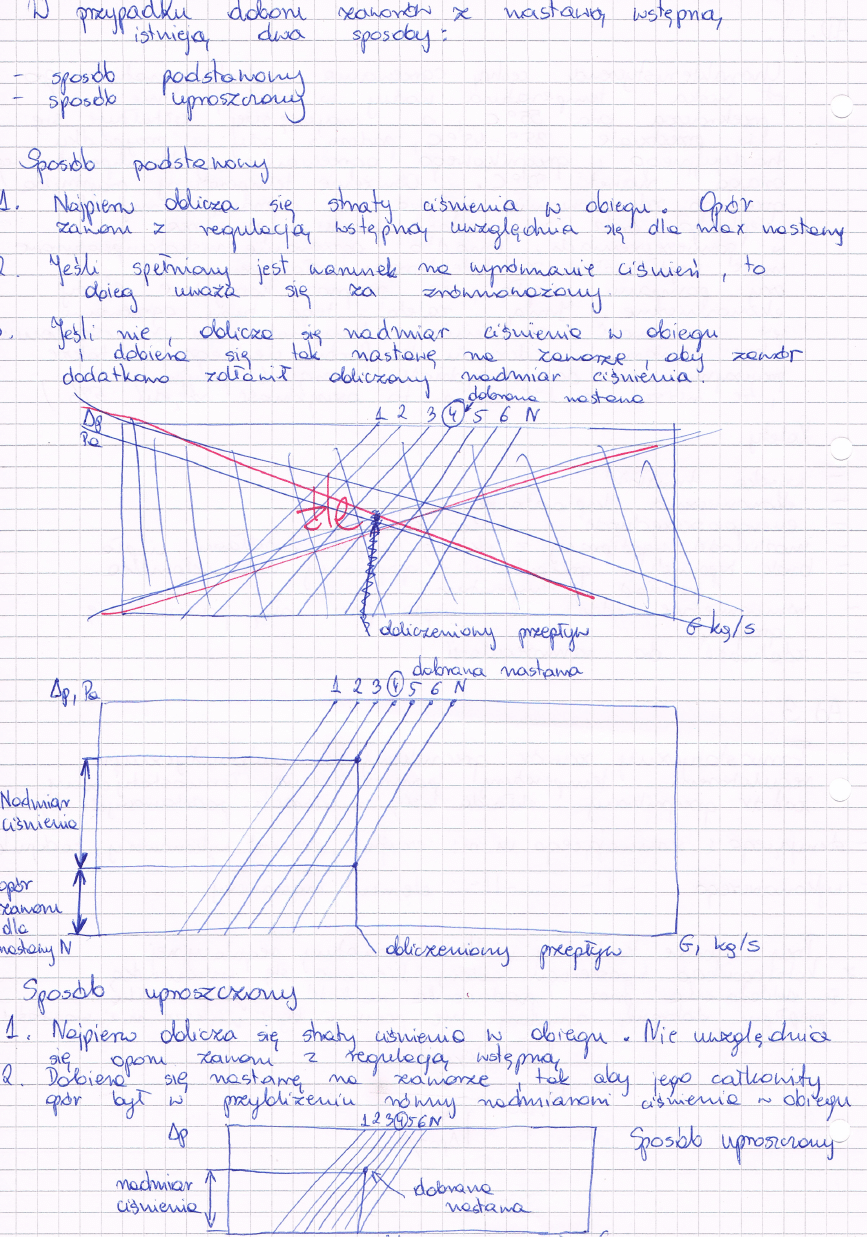 W przypadku doboru zaworów z nastawą wstępną,
istnieją dwa sposoby:
- sposób podstawowy
- sposób uproszczony
Sposób podstawowy
1. Najpierw oblicza się straty ciśnienia w obiegu. Opór
zaworu z regulacją wstępną uwzględnia się dla max nastawy
2. Jeśli spełniony jest warunek na wyrównanie ciśnień, to
obieg uważa się za zrównoważony.
3. Jeśli nie, oblicza się nadmiar ciśnienia w obiegu
i dobiera się tak nastawę na zaworze, aby zawór
dodatkowo zdławił obliczony nadmiar ciśnienia.
dobrana nastawa
Δp 1 2 3 4 5 6 N
Pa
źle
obliczeniowy przepływ G kg/s
dobrana nastawa
Δp, Pa 1 2 3 4 5 6 N
Nadmiar
ciśnienia
opór
zaworu
dla
nastawy N
obliczeniowy przepływ G, kg/s
Sposób uproszczony
1. Najpierw oblicza się straty ciśnienia w obiegu. Nie uwzględnia
się oporu zaworu z regulacją wstępną
2. Dobiera się nastawę na zaworze, tak aby jego całkowity
opór był w przybliżeniu równy nadmiarowi ciśnienia w obiegu
Δp 1 2 3 4 5 6 N Sposób uproszczony
nadmiar
ciśnienia
dobrana
nastawa